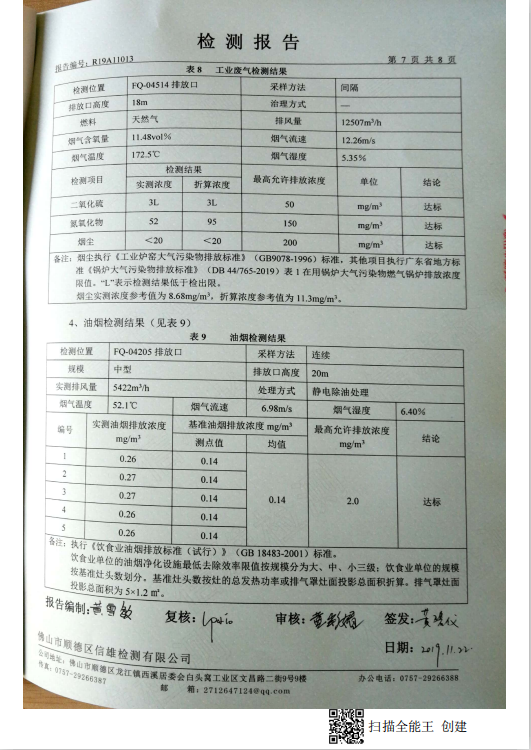 检 测 报 告
报告编号: R19A11013
第 7 页 共 8 页
表 8 工业废气检测结果
检测位置 FQ-04514 排放口 采样方法 间隔
排放口高度 18m 治理方式 —
燃料 天然气 排风量 12507m³/h
烟气含氧量 11.48vol% 烟气流速 12.26m/s
烟气温度 172.5℃ 烟气湿度 5.35%
检测项目 检测结果 最高允许排放浓度 单位 结论
实测浓度 折算浓度
二氧化硫 3L 3L 50 mg/m³ 达标
氮氧化物 52 95 150 mg/m³ 达标
烟尘 <20 <20 200 mg/m³ 达标
备注: 烟尘执行《工业炉窑大气污染物排放标准》(GB9078-1996) 标准, 其他项目执行广东省地方标
准《锅炉大气污染物排放标准》(DB 44/765-2019) 表 1 在用锅炉大气污染物燃气锅炉排放浓度
限值。“L”表示检测结果低于检出限。
烟尘实测浓度参考值为 8.68mg/m³, 折算浓度参考值为 11.3mg/m³。
4、油烟检测结果（见表 9）
表 9 油烟检测结果
检测位置 FQ-04205 排放口 采样方法 连续
规模 中型 排放口高度 20m
实测排风量 5422m³/h 处理方式 静电除油处理
烟气温度 52.1℃ 烟气流速 6.98m/s 烟气湿度 6.40%
编号 实测油烟排放浓度 mg/m³ 基准油烟排放浓度 mg/m³ 最高允许排放浓度 mg/m³ 结论
测点值 均值
1 0.26 0.14
2 0.27 0.14
3 0.27 0.14 0.14 2.0 达标
4 0.26 0.14
5 0.26 0.14
备注: 执行《饮食业油烟排放标准（试行）》(GB 18483-2001) 标准。
饮食业单位的油烟净化设施最低去除效率限值按规模分为大、中、小三级; 饮食业单位的规模
按基准灶头数划分。基准灶头数按灶的总发热功率或排气罩灶面投影总面积折算。排气罩灶面
投影总面积为 5×1.2 m²。
报告编制: 复核: 审核: 签发:
日期: 2019.11.22
佛山市顺德区信雄检测有限公司
公司地址: 佛山市顺德区龙江镇西溪居委会白头窝工业区文昌路二街9号9楼 办公电话: 0757-29266388
传真: 0757-29266387 邮 箱: 2712647124@qq.com
扫描全能王 创建